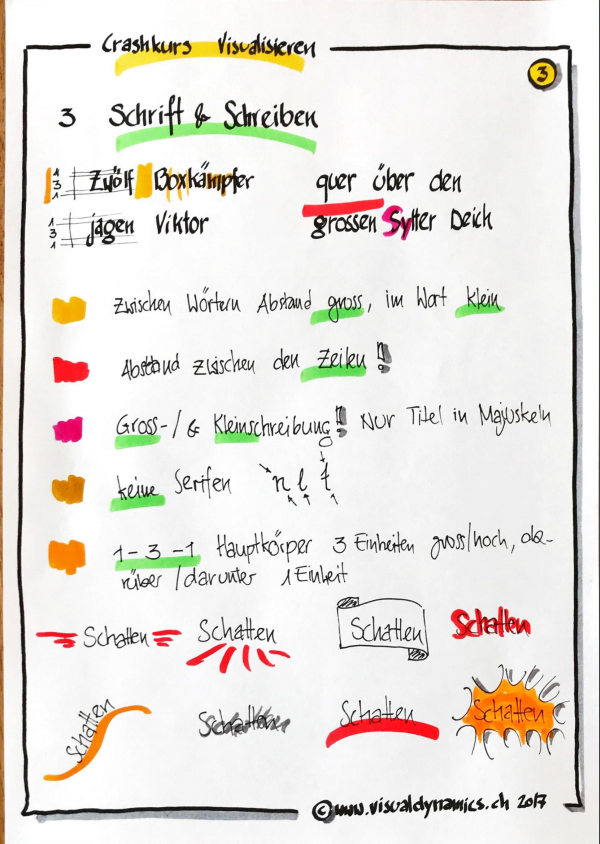 Crashkurs Visualisieren
3
3 Schrift & Schreiben
1 3 1 Zwölf Boxkämpfer quer über den
1 3 1 jagen Viktor grossen Sylter Deich
Zwischen Wörtern Abstand gross, im Wort klein
Abstand zwischen den Zeilen!
Gross-/& Kleinschreibung! Nur Titel in Majuskeln
keine Serifen n l t
1-3-1 Hauptkörper 3 Einheiten gross/hoch, da-
rüber/darunter 1 Einheit
Schatten Schatten Schatten Schatten
Schatten Schatten Schatten Schatten
© www.visualdynamics.ch 2017